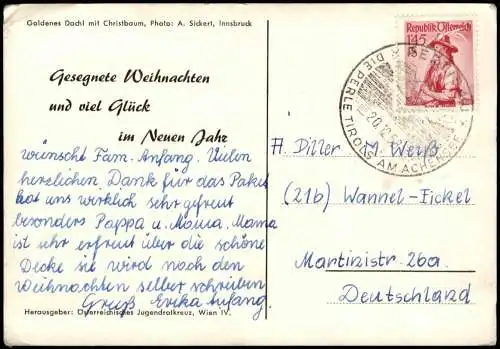 Goldenes Dachl mit Christbaum, Photo: A. Sickert, Innsbruck
Gesegnete Weihnachten
und viel Glück
im Neuen Jahr
wünscht Fam. Anfang. Vielen
herzlichen Dank für das Paket
hat uns wirklich sehr gefreut
besonders Pappa u. Mama. Mama
ist sehr erfreut über die schöne
Decke sie wird nach den
Weihnachten selber schreiben
Gruß Erika Anfang.
Herausgeber: Österreichisches Jugendrotkreuz, Wien IV.
Republik Österreich
1.45
DIE PERLE TIROLS AM ACHENSEE
20.12.
A. Diller M. Weiß
(21b) Wannel-Eickel
Martinistr. 26a.
Deutschland